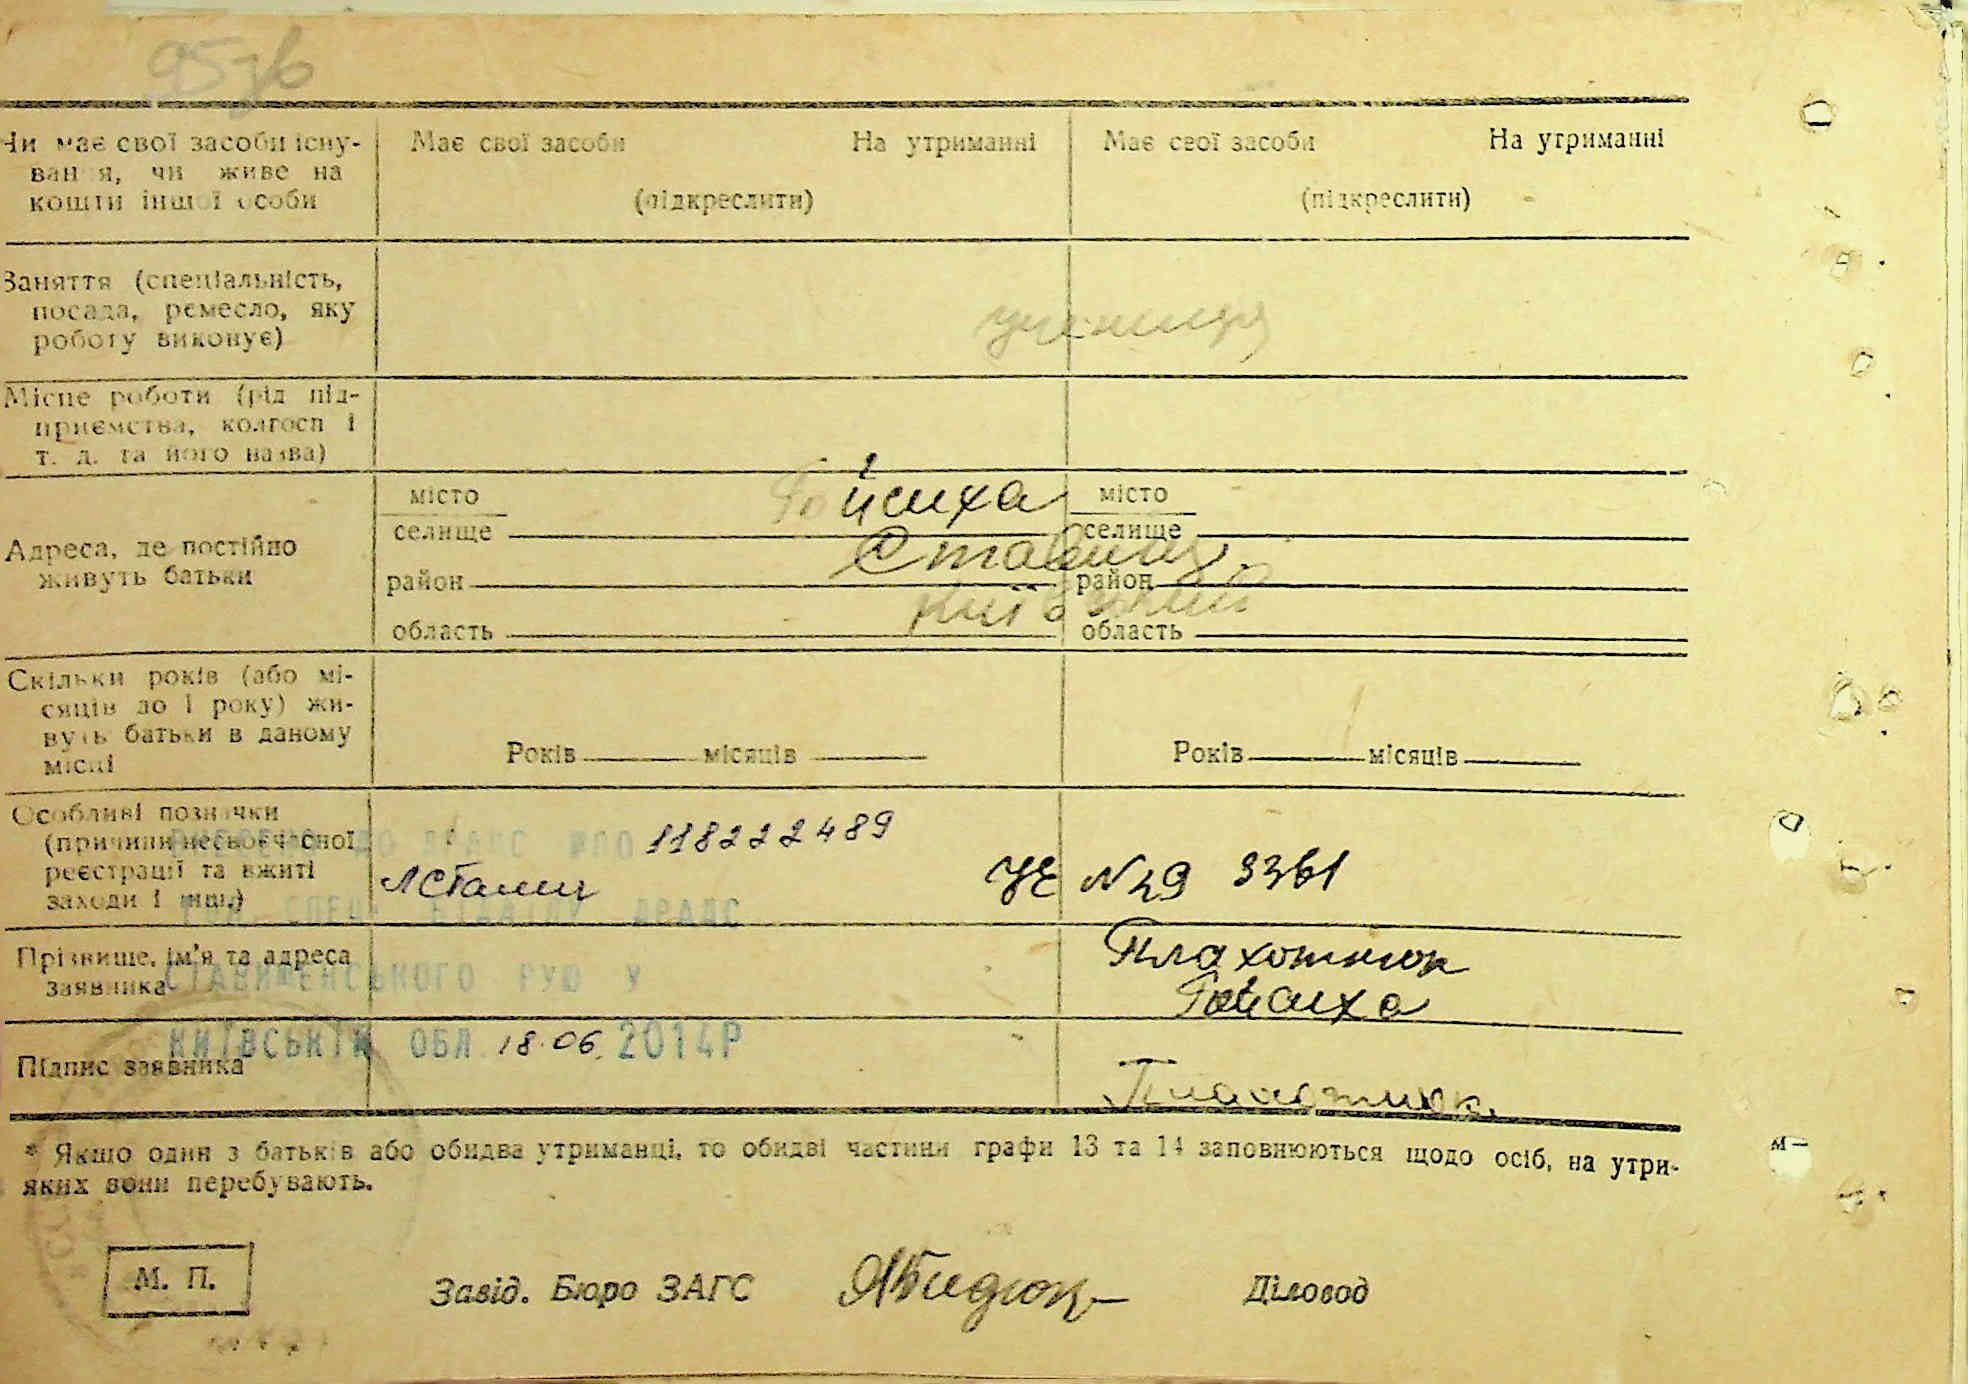 Чи має свої засоби існу-
вання, чи живе на
кошти іншої особи
Має свої засоби На утриманні
(підкреслити)
Має свої засоби На утриманні
(підкреслити)
Заняття (спеціальність,
посада, ремесло, яку
роботу виконує)
учениця
Місце роботи (рід під-
приємства, колгосп і
т. д. та його назва)
Адреса, де постійно
живуть батьки
місто Гойсиха
селище
район Ставищ.
область Київський
місто
селище
район
область
Скільки років (або мі-
сяців до 1 року) жи-
вуть батьки в даному
місці
Років місяців
Років місяців
Особливі позначки
(причини несвоєчасної
реєстрації та вжиті
заходи і інш.)
ДО ДРАЦС 118222489
ДРАЦС
СТАВИЩЕНСЬКОГО РУЮ У
КИЇВСЬКІЙ ОБЛ. 18.06.2014Р
УЄ №29 3361
Прізвище, ім'я та адреса
заявника
Плахотнюк
Гойсиха
Підпис заявника
Плахотнюк.
* Якщо один з батьків або обидва утриманці, то обидві частини графи 13 та 14 заповнюються щодо осіб, на утри-
яких вони перебувають.
М. П.
Завід. Бюро ЗАГС
Діловод